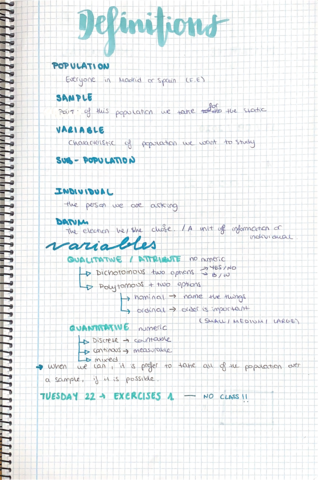 Definitions
POPULATION
Everyone in Madrid or Spain (E.E)
SAMPLE
Part of this population we take for the statistic
VARIABLE
Characteristic of population we want to study
SUB-POPULATION
INDIVIDUAL
The person we are asking
DATUM
The election he/she chose / A unit of information of
individual
Variables
QUALITATIVE / ATTRIBUTE no numeric
↳ Dichotomous two options → YES/NO
→ B/W
↳ Polytomous + two options
↳ nominal → name the things
↳ ordinal → order is important
(SMALL/MEDIUM/LARGE)
QUANTITATIVE numeric
↳ DISCRETE → countable
↳ continous → measurable
↳ mixed
→ When we can, it is prefer to take all of the population over
a sample, if it is possible.
TUESDAY 22 → EXERCISES 1 — NO CLASS!!